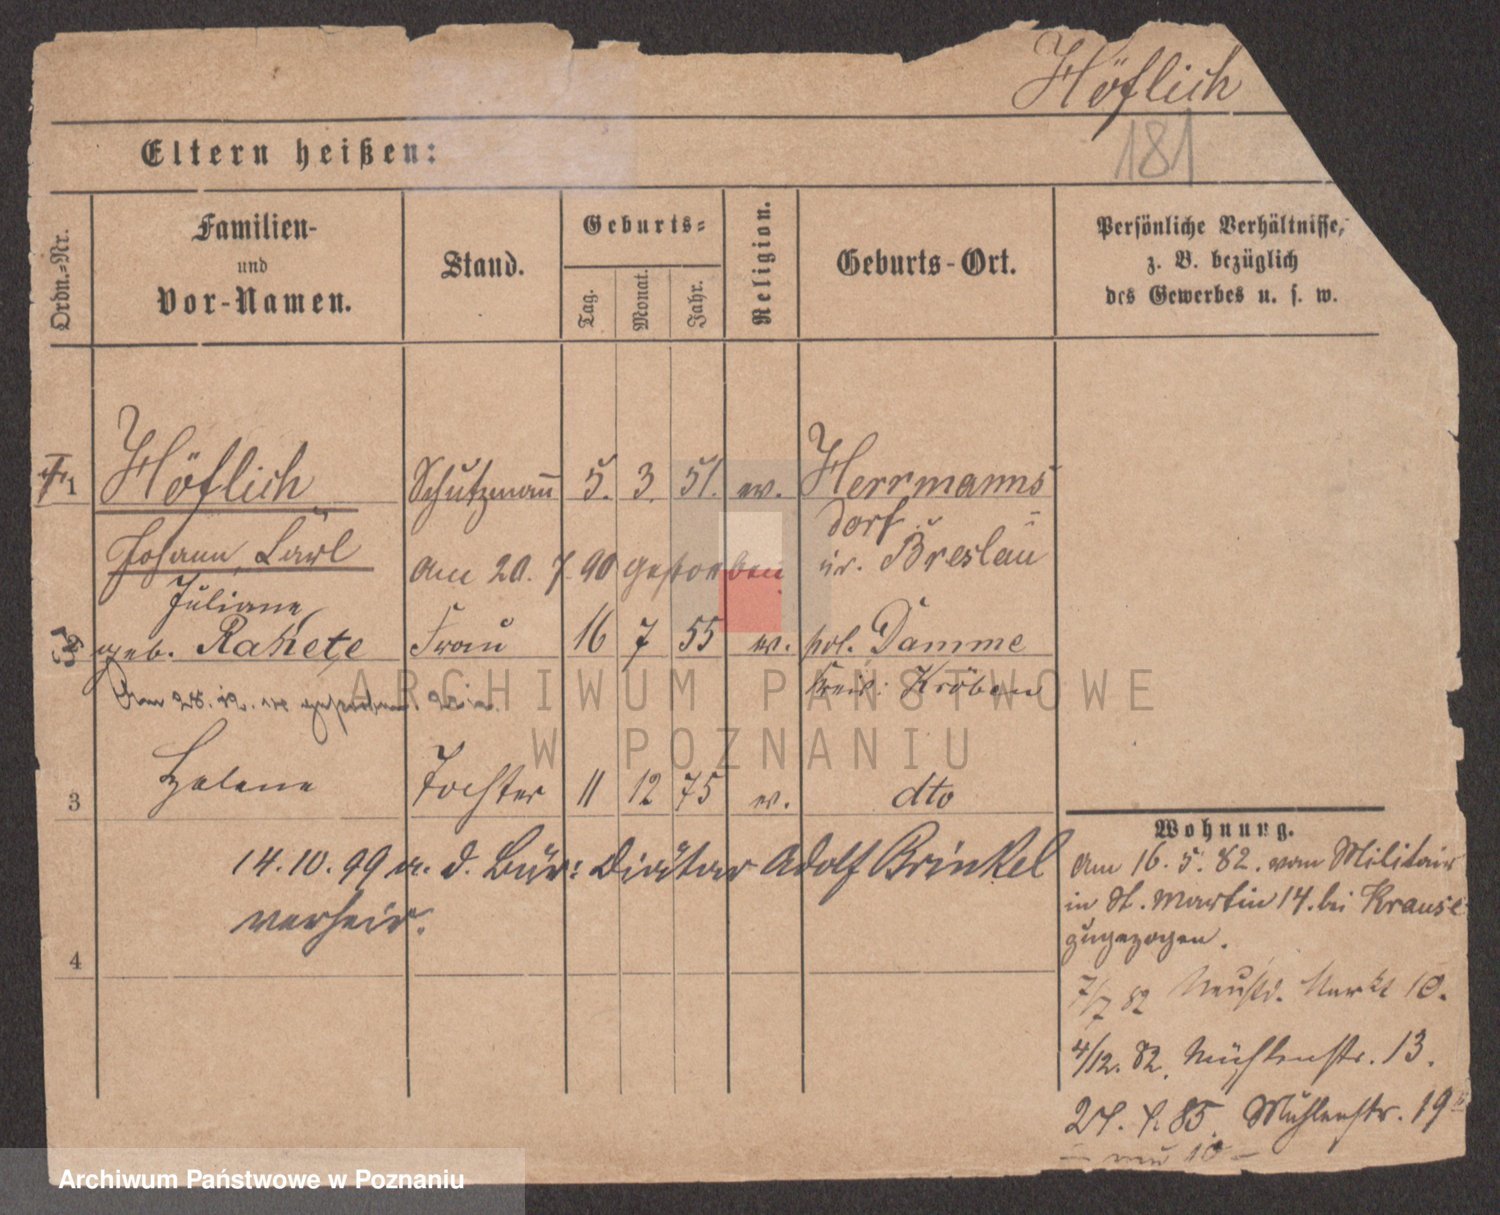 Höflich
181
Eltern heißen:
Ordn.-Nr.
Familien-
und
Vor-Namen.
Stand.
Geburts-
Tag.
Monat.
Jahr.
Religion.
Geburts-Ort.
Persönliche Verhältnisse,
z. B. bezüglich
des Gewerbes u. s. w.
1 Höflich Schutzmann 5. 3. 51. ev. Herrmanns
dorf
Johann Carl am 20. 7. 90 gestorben Kr. Breslau
Juliane
geb. Rakete Frau 16 7 55 ev. pol. Damme
Am 28. 12. gestorben Kreis: Kröben
3 Helene Tochter 11 12 75 ev. dto
14. 10. 99 m. d. Bür: Diätar Adolf Brinkel
verheir.
4
Wohnung.
Am 16. 5. 82. vom Militair
in St. Martin 14. bei Krause
zugezogen.
7/7 82 Neust. Markt 10.
4/12. 82. Mühlenstr. 13.
24. 4. 85. Mühlenstr. 19
ARCHIWUM PAŃSTWOWE
W POZNANIU
Archiwum Państwowe w Poznaniu